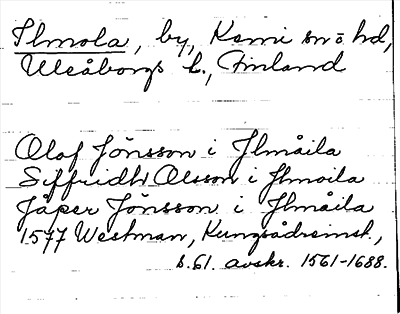 Ilmola, by, Kemi sn o hd,
Uleåborgs l., Finland
Olof Jönsson i Ilmåila
Siffridh Olsson i Ilmoila
Jåper Jönsson i Ilmåila
1577 Westman, Kungsådreinsk.,
s. 61. avskr. 1561-1688.